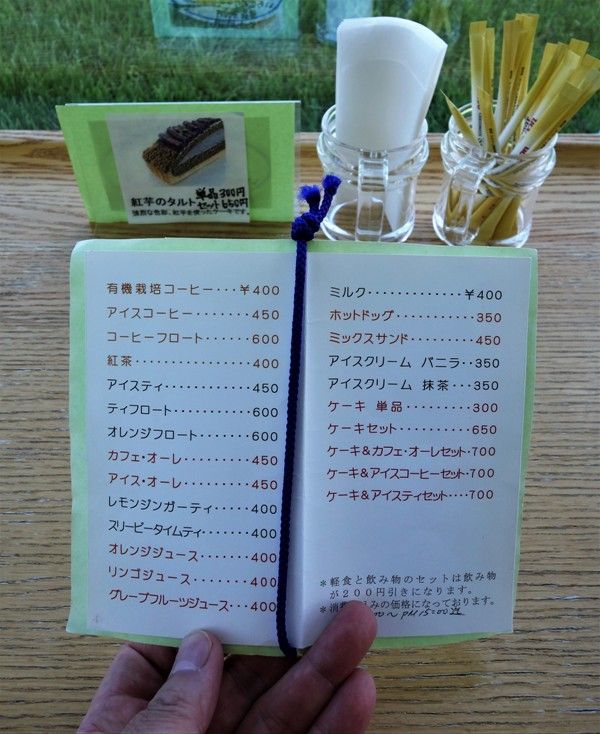 紅芋のタルト 単品300円
セット650円
強烈な色彩、紅芋を使ったケーキです。
有機栽培コーヒー···¥400
アイスコーヒー·······450
コーヒーフロート······600
紅茶·············400
アイスティ··········450
ティフロート·········600
オレンジフロート······600
カフェ・オーレ·······450
アイス・オーレ·······450
レモンジンガーティ·····400
スリーピータイムティ····400
オレンジジュース······400
リンゴジュース·······400
グレープフルーツジュース···400
ミルク···········¥400
ホットドッグ·········350
ミックスサンド·······450
アイスクリーム バニラ··350
アイスクリーム 抹茶···350
ケーキ 単品·········300
ケーキセット·········650
ケーキ&カフェ・オーレセット·700
ケーキ&アイスコーヒーセット·700
ケーキ&アイスティセット····700
*軽食と飲み物のセットは飲み物
が200円引きになります。
*消費 込みの価格になっております。
PM15:00迄